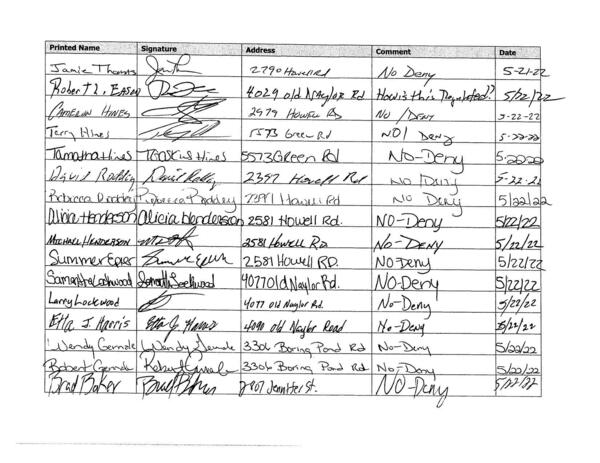 Printed Name Signature Address Comment Date
Jamie Thomas 2790 Howell Rd No Deny 5-21-22
Robert L. Eason 4029 old Naylor Rd How is this Regulated? 5/22/22
CAMERON HINES 2979 HOWELL RD NO / DENY 5-22-22
Terry Hines 5573 Green Rd NO! Deny 5-22-22
Tamatha Hines Hines 5573 Green Rd No-Deny
David Radley David Radley 2397 Howell Rd NO / Deny 5-22-22
Rebecca Rebecca Howell Rd No Deny 5/22/22
Alicia Henderson Alicia Henderson 2581 Howell Rd. NO-Deny 5/22/22
MICHAEL HENDERSON 2581 HOWELL RD NO-DENY 5/22/22
Summer Epier Summer Epier 2581 Howell RD. NO Deny 5/22/22
Samantha Lockwood Samantha Lockwood 4077 Old Naylor Rd. NO-Deny 5/22/22
Larry Lockwood 4077 old Naylor Rd. No-Deny 5/22/22
Etta J. Harris Etta J. Harris 4090 old Naylor Road No-Deny 5/22/22
Wendy Wendy 3306 Boring Pond Rd No-Deny 5/22/22
Robert Robert 3306 Boring Pond Rd No-Deny 5/22/22
Brad Baker Brad Baker Jennifer St. NO-Deny 5/22/22